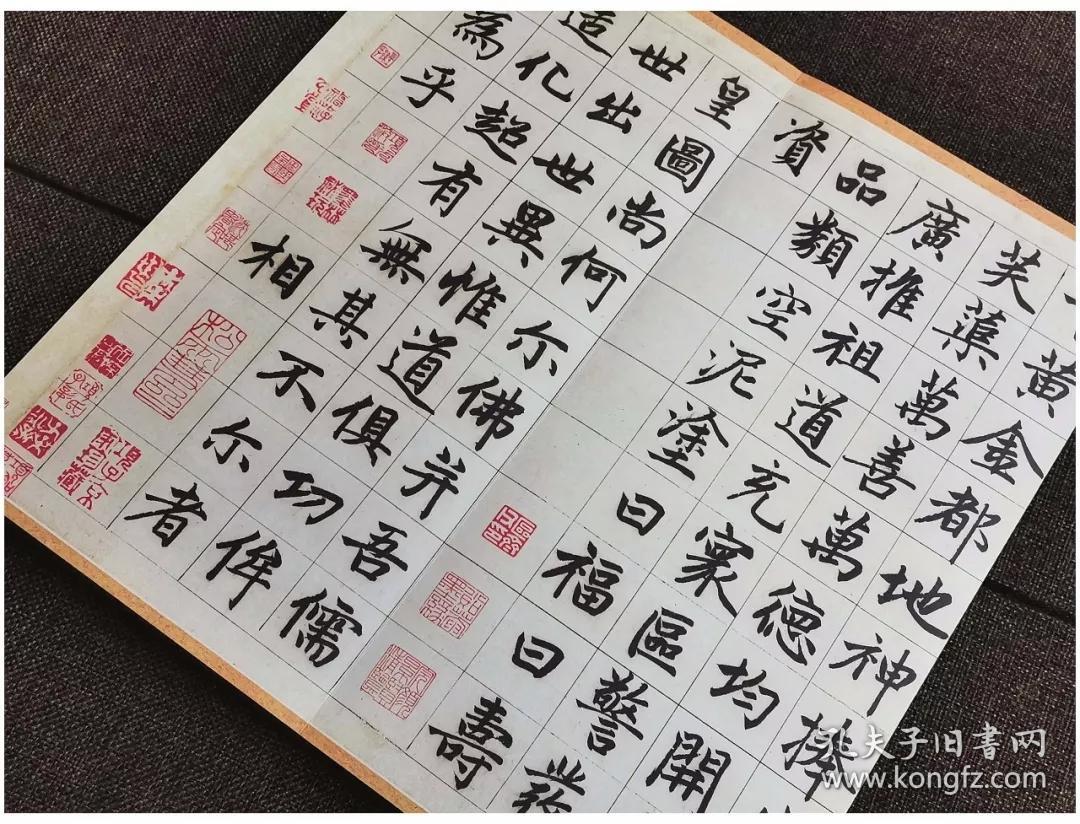 黄金都地神捧
芙蕖萬善萬德均開
廣推祖道充寰區警發
品類空泥塗曰福曰壽
資
皇圖尚何尔佛并吾儒
世出世異惟道俱功侔
造化超有無其不尔者
為乎
相
孔夫子旧书网
www.kongfz.com